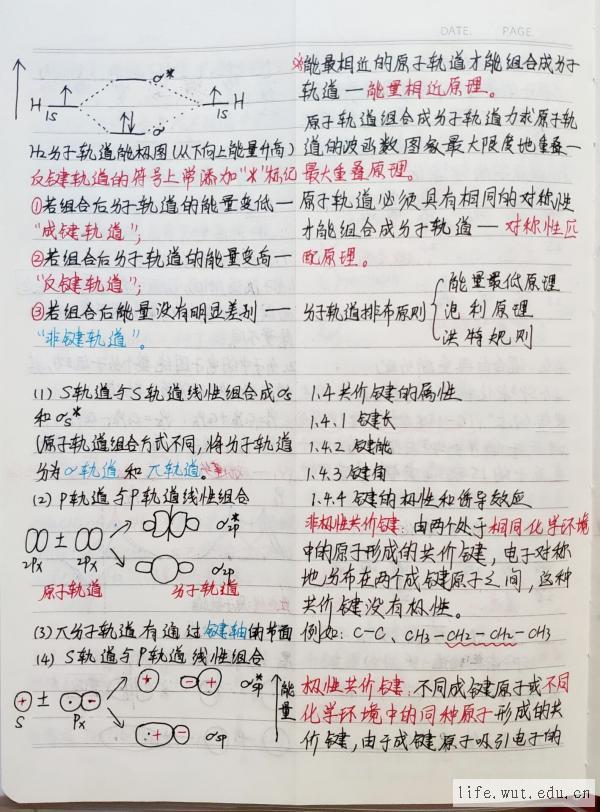 DATE. PAGE.
σ*
H 1S 1S H
σ
H₂分子轨道能级图(从下向上能量升高)
反键轨道的符号上常添加"*"标记
①若组合后分子轨道的能量变低—
"成键轨道";
②若组合后分子轨道的能量变高—
"反键轨道";
③若组合后能量没有明显差别—
"非键轨道"。
(1) S轨道与S轨道线性组合成σs
和σs*
(原子轨道组合方式不同,将分子轨道
分为σ轨道和π轨道。
(2) P轨道与P轨道线性组合
± σ2p*
2Px 2Px σ2p
原子轨道 分子轨道
(3) π分子轨道有通过键轴的节面
(4) S轨道与P轨道线性组合
+ ± + - + - + σsp* 能量
S Px + - σsp
※能最相近的原子轨道才能组合成分子
轨道—能量相近原理。
原子轨道组合成分子轨道力求原子轨
道的波函数图象最大限度地重叠—
最大重叠原理。
原子轨道必须具有相同的对称性
才能组合成分子轨道—对称性匹
配原理。
能量最低原理
分子轨道排布原则 泡利原理
洪特规则
1.4 共价键的属性
1.4.1 键长
1.4.2 键能
1.4.3 键角
1.4.4 键的极性和诱导效应
非极性共价键:由两个处于相同化学环境
中的原子形成的共价键,电子对称
地分布在两个成键原子之间,这种
共价键没有极性。
例如: C-C、CH3-CH2-CH2-CH3
极性共价键:不同成键原子或不同
化学环境中的同种原子形成的共
价键,由于成键原子吸引电子的
life.wut.edu.cn